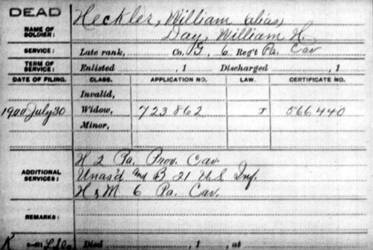 DEAD
NAME OF SOLDIER: Heckler, William alias
Day, William H.
SERVICE: Late rank, Co. G, 6 Reg't Pa. Cav
TERM OF SERVICE: Enlisted , 1 Discharged , 1
DATE OF FILING. CLASS. APPLICATION NO. LAW. CERTIFICATE NO.
Invalid,
1900 July 30 Widow, 723862 566440
Minor,
ADDITIONAL SERVICES: H 2 Pa. Prov. Cav
Unas'd and B 21 U.S. Inf.
H & M 6 Pa. Cav.
REMARKS:
Died , 1 , at